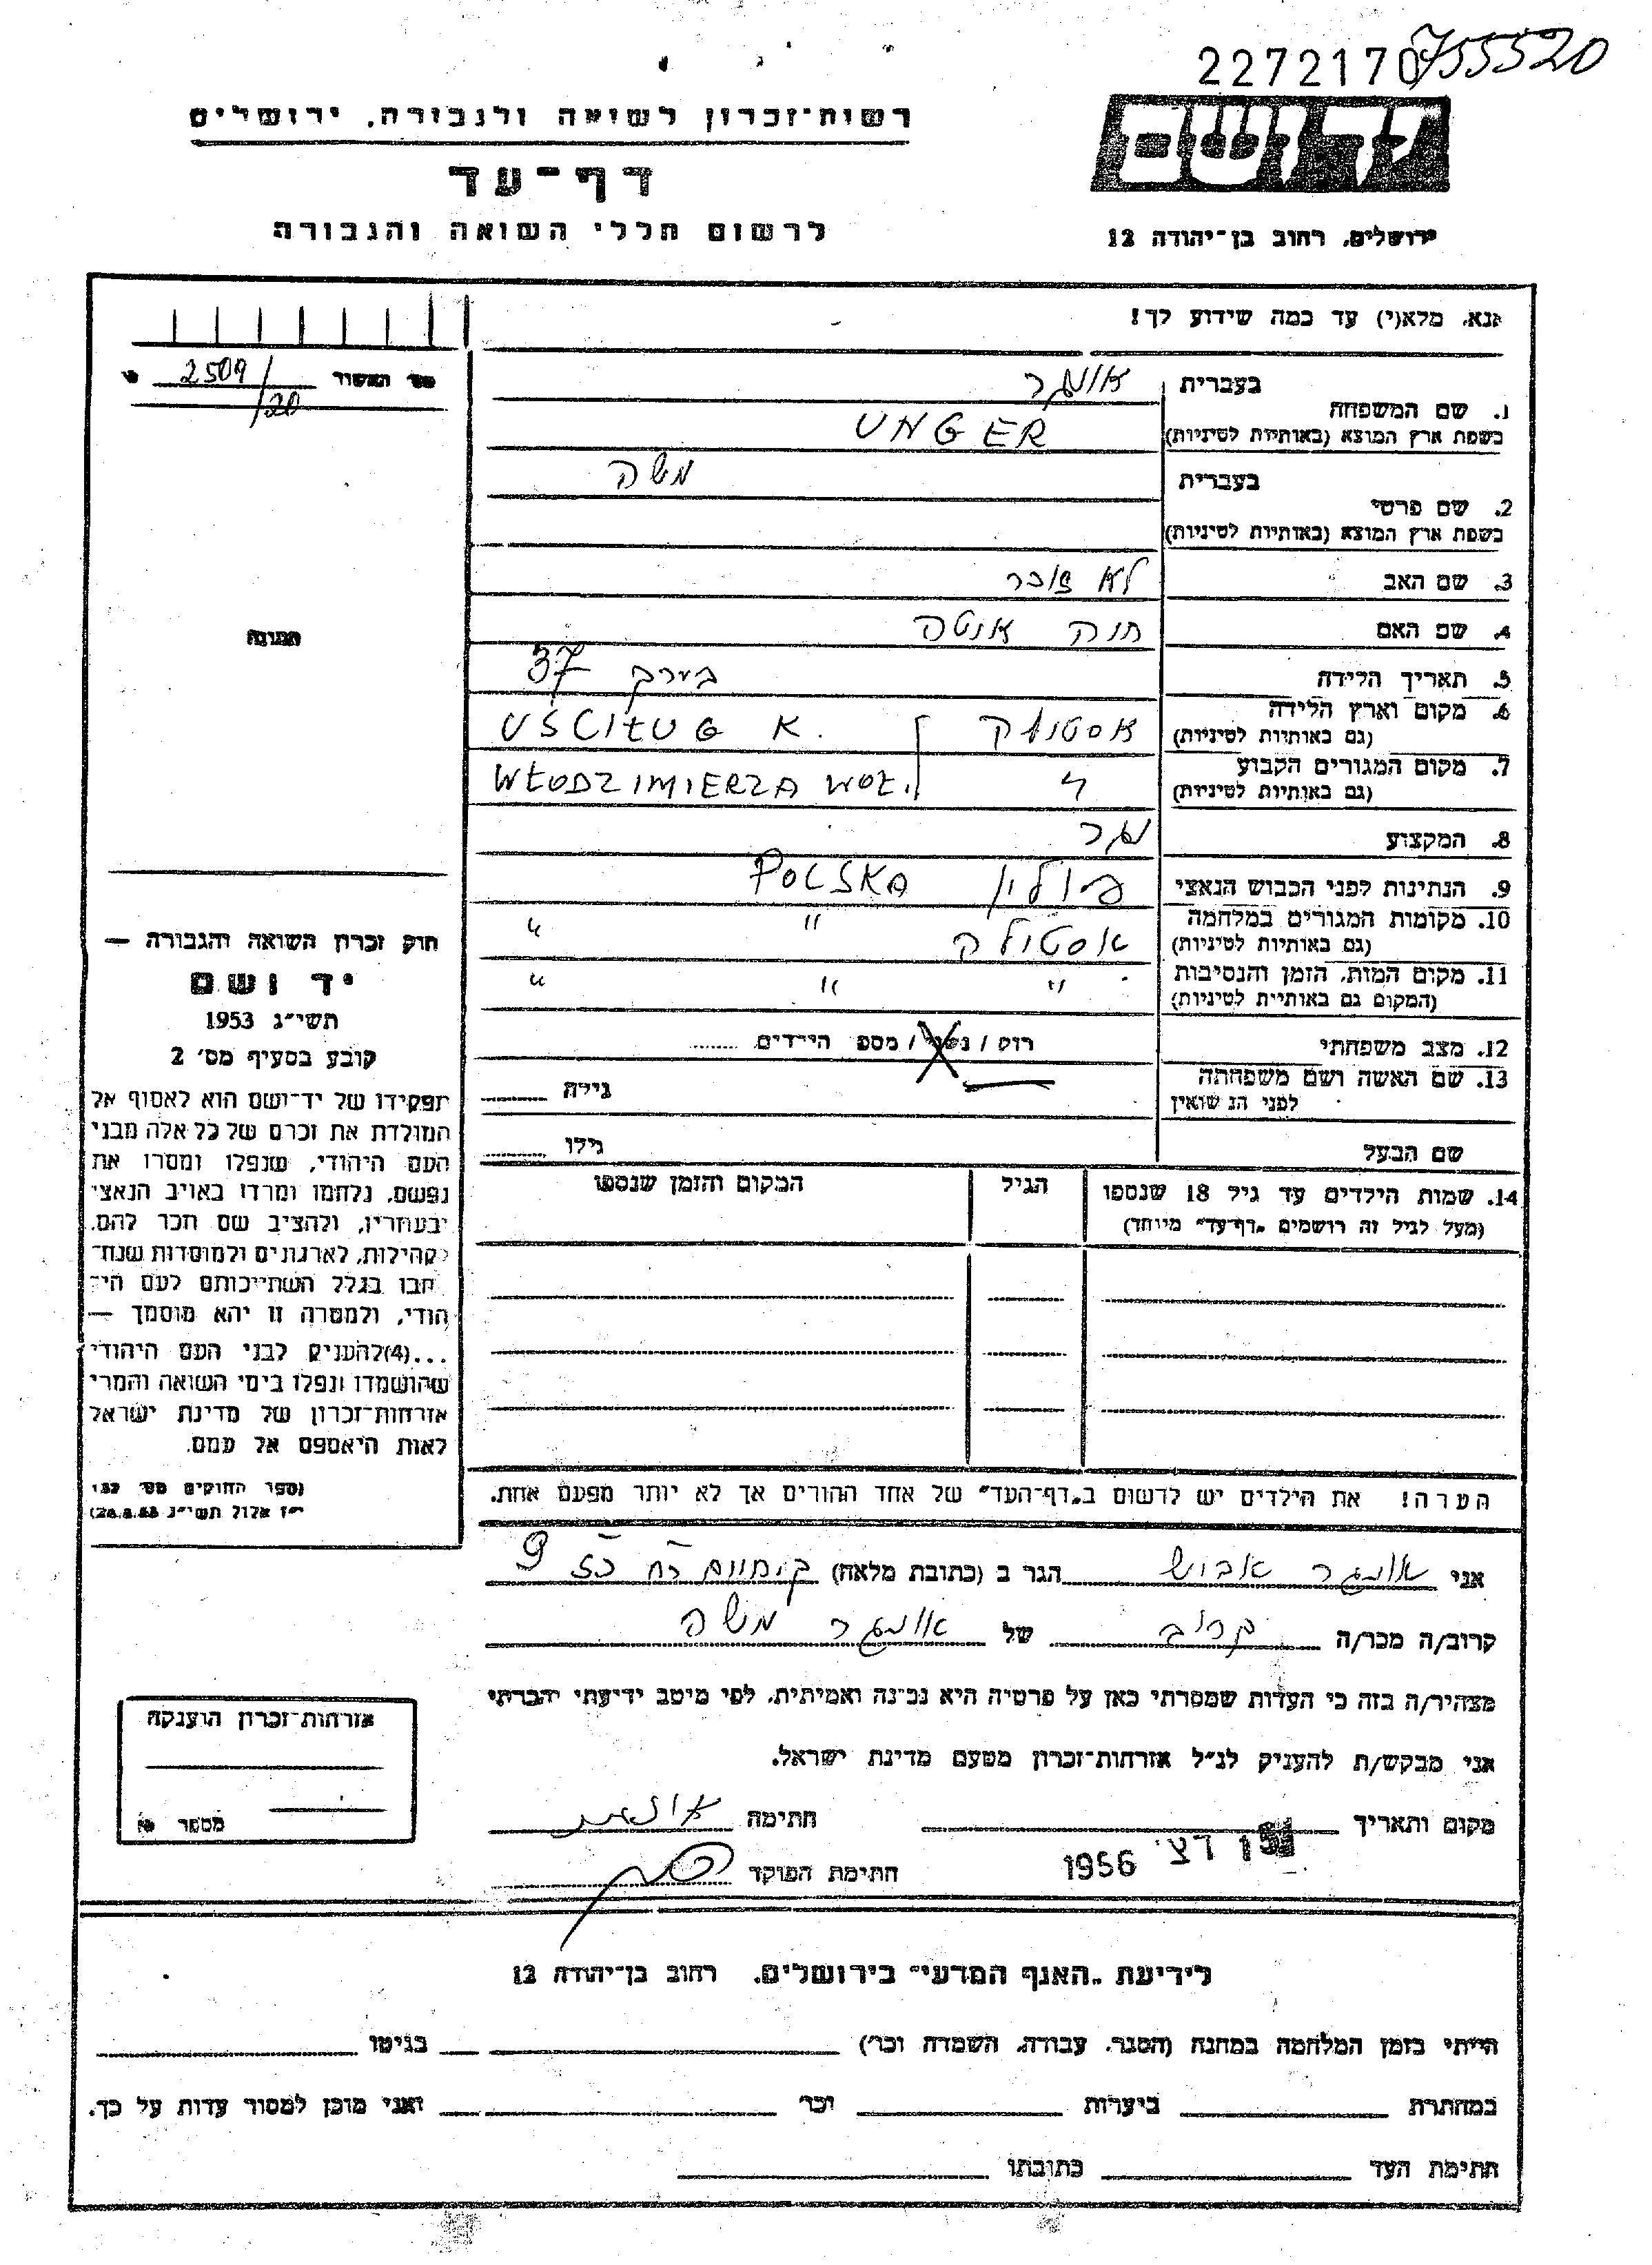 2272170 755520
יד ושם
רשות־זכרון לשואה ולגבורה, ירושלים
דף־עד
לרשום חללי השואה והגבורה
ירושלים, רחוב בן־יהודה 12
אנא, מלא(י) עד כמה שידוע לך!
מס' האשור 2509/20
1. שם המשפחה
בעברית אונגר
בשפת ארץ המוצא (באותיות לטיניות) UNGER
2. שם פרטי
בעברית משה
בשפת ארץ המוצא (באותיות לטיניות)
3. שם האב לא זוכר
4. שם האם חנה אוטה
5. תאריך הלידה בערך 37
6. מקום וארץ הלידה
(גם באותיות לטיניות) אסטולה UŚCIŁUG K.
7. מקום המגורים הקבוע
(גם באותיות לטיניות) " WŁODZIMIERZA WOŁ.
8. המקצוע נגר
9. הנתינות לפני הכבוש הנאצי פולין POLSKA
10. מקומות המגורים במלחמה
(גם באותיות לטיניות) אסטולה " "
11. מקום המות, הזמן והנסיבות
(המקום גם באותיות לטיניות) " " "
12. מצב משפחתי רוק / נשוי / מספ הילדים ........
13. שם האשה ושם משפחתה
לפני הנשואין גילה
שם הבעל גילו
14. שמות הילדים עד גיל 18 שנספו
(מעל לגיל זה רושמים "דף־עד" מיוחד)
הגיל
המקום והזמן שנספו
תמונה
חוק זכרון השואה והגבורה —
יד ושם
תשי״ג 1953
קובע בסעיף מס' 2
תפקידו של יד־ושם הוא לאסוף אל
המולדת את זכרם של כל אלה מבני
העם היהודי, שנפלו ומסרו את
נפשם, נלחמו ומרדו באויב הנאצי
ובעוזריו, ולהציב שם וזכר להם,
לקהילות, לארגונים ולמוסדות שנח־
רבו בגלל השתייכותם לעם הי־
הודי, ולמטרה זו יהא מוסמך —
...(4)להעניק לבני העם היהודי
שהושמדו ונפלו בימי השואה והמרי
אזרחות־זכרון של מדינת ישראל
לאות היאספם אל עמם.
(ספר החוקים מס' 132
י״ז אלול תשי״ג 28.8.53)
הערה! את הילדים יש לרשום ב„דף־העד" של אחד ההורים אך לא יותר מפעם אחת.
אני אונגר אבוש הגר ב (כתובת מלאה) 9
קרוב/ה מכר/ה קרוב של אונגר משה
מצהיר/ה בזה כי העדות שמסרתי כאן על פרטיה היא נכונה ואמיתית, לפי מיטב ידיעתי והכרתי
אני מבקש/ת להעניק לנ״ל אזרחות־זכרון מטעם מדינת ישראל.
מקום ותאריך דצ' 1956 חתימה
חתימת הפוקד
אזרחות־זכרון הוענקה
מספר
לידיעת „האגף המדעי" בירושלים, רחוב בן־יהודה 12
הייתי בזמן המלחמה במחנה (הסגר, עבודה, השמדה וכו') בגיטו
במחתרת ביערות וכו' ואני מוכן למסור עדות על כך.
חתימת העד כתובתו